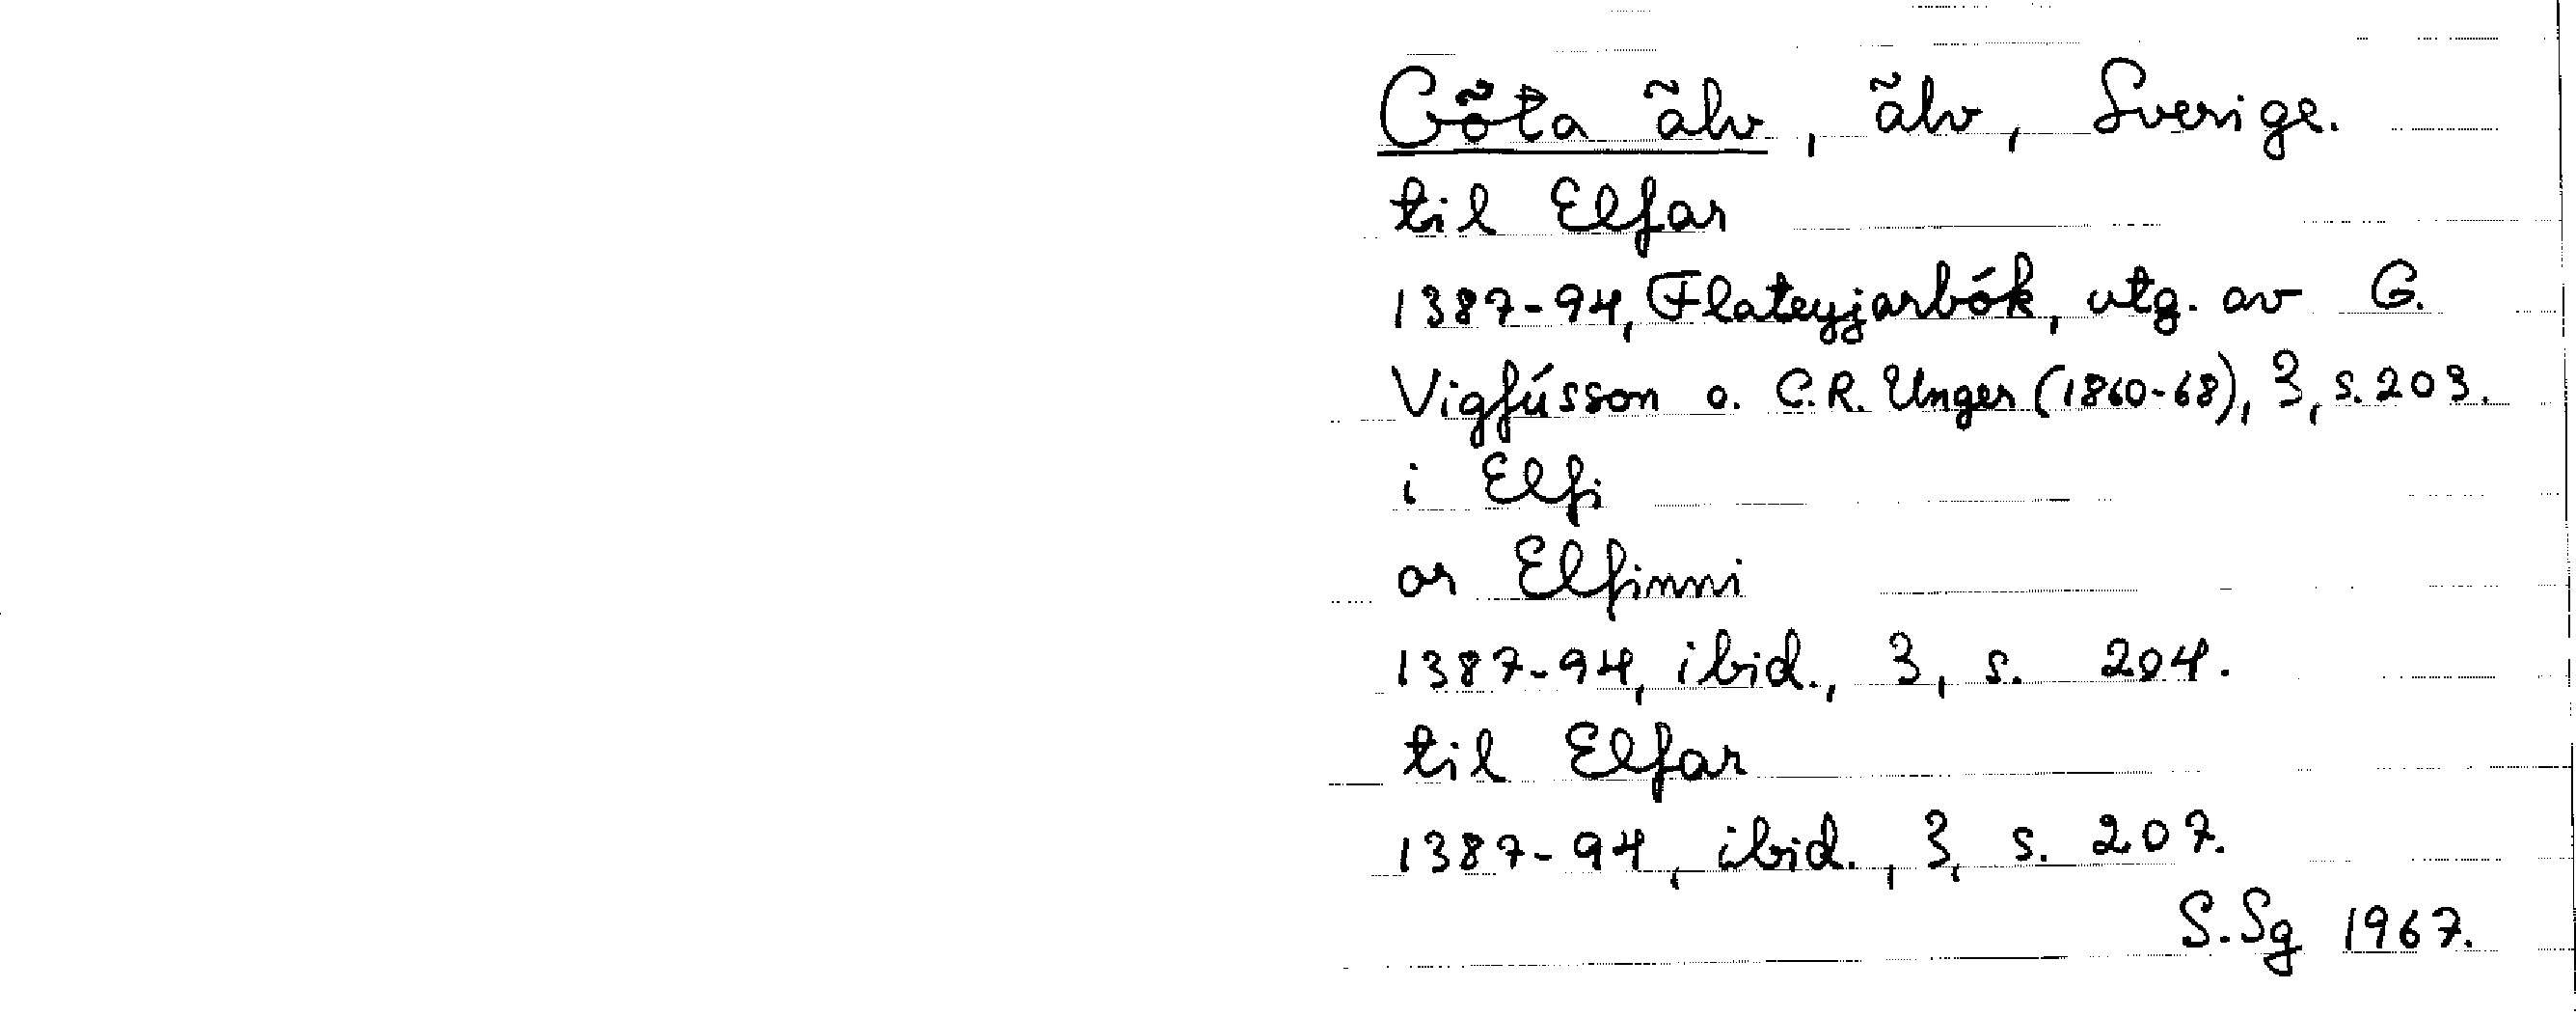 Göta älv, älv, Sverige.
til Elfar
1387-94, Flateyjarbók, utg. av G.
Vigfússon o. C.R. Unger (1860-68), 3, s. 203.
i Elfi
or Elfinni
1387-94, ibid., 3, s. 204.
til Elfar
1387-94, ibid., 3, s. 207.
S.Sg 1967.